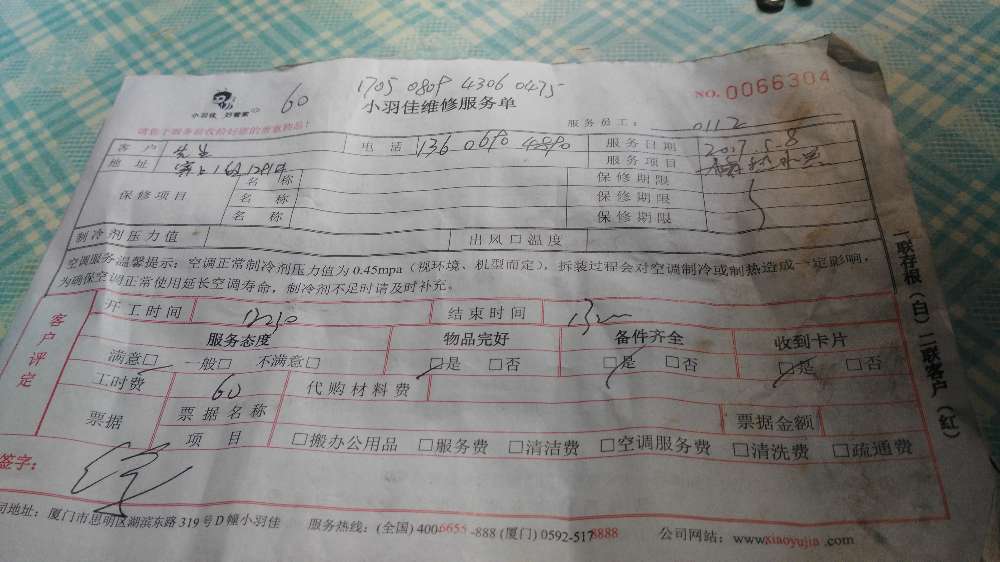 1705 0809 4306 0475
60
NO. 0066304
小羽佳 好管家
小羽佳维修服务单
服务员工: 0112
请您于服务前收拾好您的贵重物品!
客户 先生 电话 136 0690 4890 服务日期 2017.5.8
地址 服务项目
保修项目 名称 保修期限
名称 保修期限
名称 保修期限
制冷剂压力值 出风口温度
空调服务温馨提示: 空调正常制冷剂压力值为0.45mpa (视环境、机型而定), 拆装过程会对空调制冷或制热造成一定影响,
为确保空调正常使用延长空调寿命, 制冷剂不足时请及时补充。
客户评定
开工时间 1230 结束时间 1300
服务态度 物品完好 备件齐全 收到卡片
满意□ 一般□ 不满意□ □是 □否 □是 □否 □是 □否
工时费 60 代购材料费
票据 票据名称 票据金额
项目 □搬办公用品 □服务费 □清洁费 □空调服务费 □清洗费 □疏通费
签字:
司地址: 厦门市思明区湖滨东路319号D幢小羽佳 服务热线: (全国) 4006655-888 (厦门) 0592-5178888 公司网站: www.xiaoyujia.com
一联存根(白)二联客户(红)